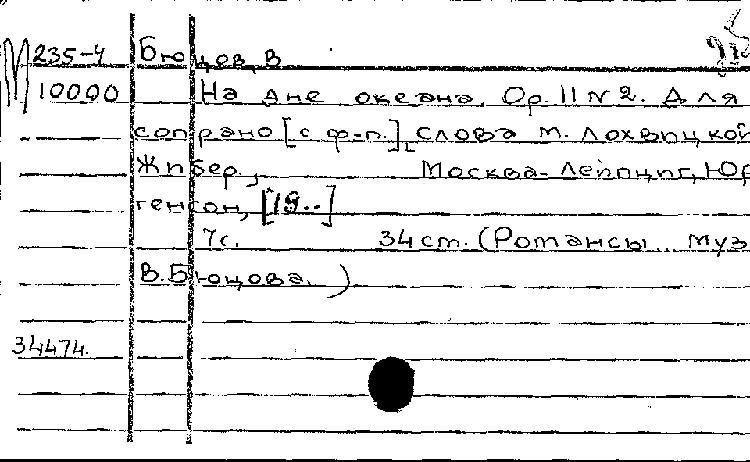 М 235-4 Бюцов, В.
10000 На дне океана. Op. 11 № 2. Для
сопрано [с ф-п.], слова М. Лохвицкой
Жибер., Москва-Лейпциг, Юр
генсон, [19..]
7с. 34 cm. (Романсы... муз
В. Бюцова.)
34474.